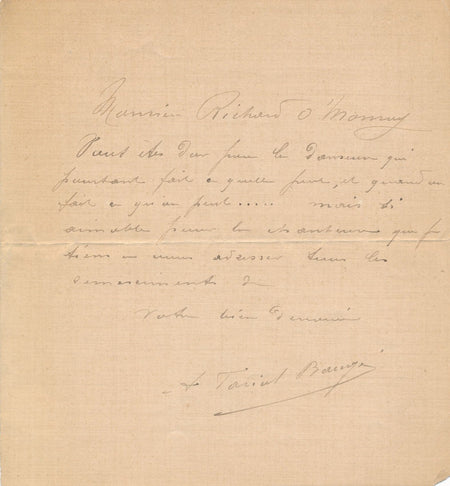 Monsieur Richard O'Monroy
Vous êtes dur pour la danseuse qui
pourtant fait ce qu'elle peut, et quand on
fait ce qu'on peut..... mais si
aimable pour la chanteuse que je
tiens à vous adresser tous les
remerciements de
Votre bien dévouée
Tariol Baugé